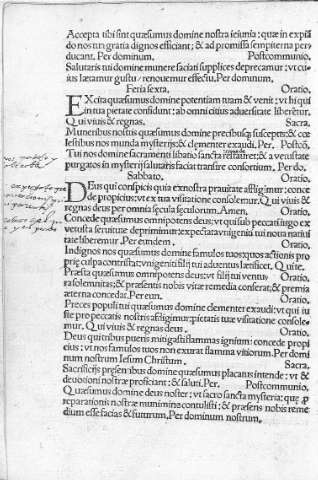 Accepta tibi sint quæsumus domine nostra ieiunia: quæ in expiādo nos tua gratia dignos efficiant: & ad promissa sempiterna perducant. Per dominum. Postcommunio.
Salutaris tui domine munere satiati supplices deprecamur: vt cuius lætamur gustu renouemur effectu. Per dominum.
Feria sexta. Oratio.
EXcita quæsumus domine potentiam tuam & veni: vt hi qui in tua pietate confidunt: ab omni citius aduersitate liberētur.
Qui viuis & regnas. Sacra.
Muneribus nostris quæsumus domine precibusq; susceptis: & cœlestibus nos munda mysterijs: & clementer exaudi. Per. Postcō.
Tui nos domine sacramenti libatio sancta restauret: & a vetustate purgatos in mysterij salutaris faciat transire consortium. Per do.
Sabbato. Oratio.
DEus qui conspicis quia ex nostra prauitate affligimur: concede propicius: vt ex tua visitatione consolemur. Qui viuis & regnas deus per omnia sæcula sæculorum. Amen. Oratio.
Concede quæsumus omnipotens deus: vt qui sub peccati iugo ex vetusta seruitute deprimimur: expectata vnigeniti tui noua natiuitate liberemur. Per eundem. Oratio.
Indignos nos quæsumus domine famulos tuos: quos actionis propriæ culpa contristat: vnigeniti filij tui aduentus lætificet. Qui te.
Præsta quæsumus omnipotens deus: vt filij tui ventura solemnitas: & præsentis nobis vitæ remedia conferat: & premia æterna concedat. Per eun. Oratio.
Preces populi tui quæsumus domine clementer exaudi: vt qui iuste pro peccatis nostris affligimur: pietatis tuæ visitatione consolemur. Qui viuis & regnas deus. Oratio.
Deus qui tribus pueris mitigasti flammas ignium: concede propicius: vt nos famulos tuos non exurat flamma vitiorum. Per dominum nostrum Iesum Christum. Sacra.
Sacrificijs presentibus domine quæsumus placatus intende: vt & deuotioni nostræ proficiant: & saluti. Per. Postcommunio.
Quæsumus domine deus noster: vt sacrosancta mysteria: quæ p reparationis nostræ munimine contulisti: & præsens nobis remedium esse facias & futurum. Per dominum nostrum.